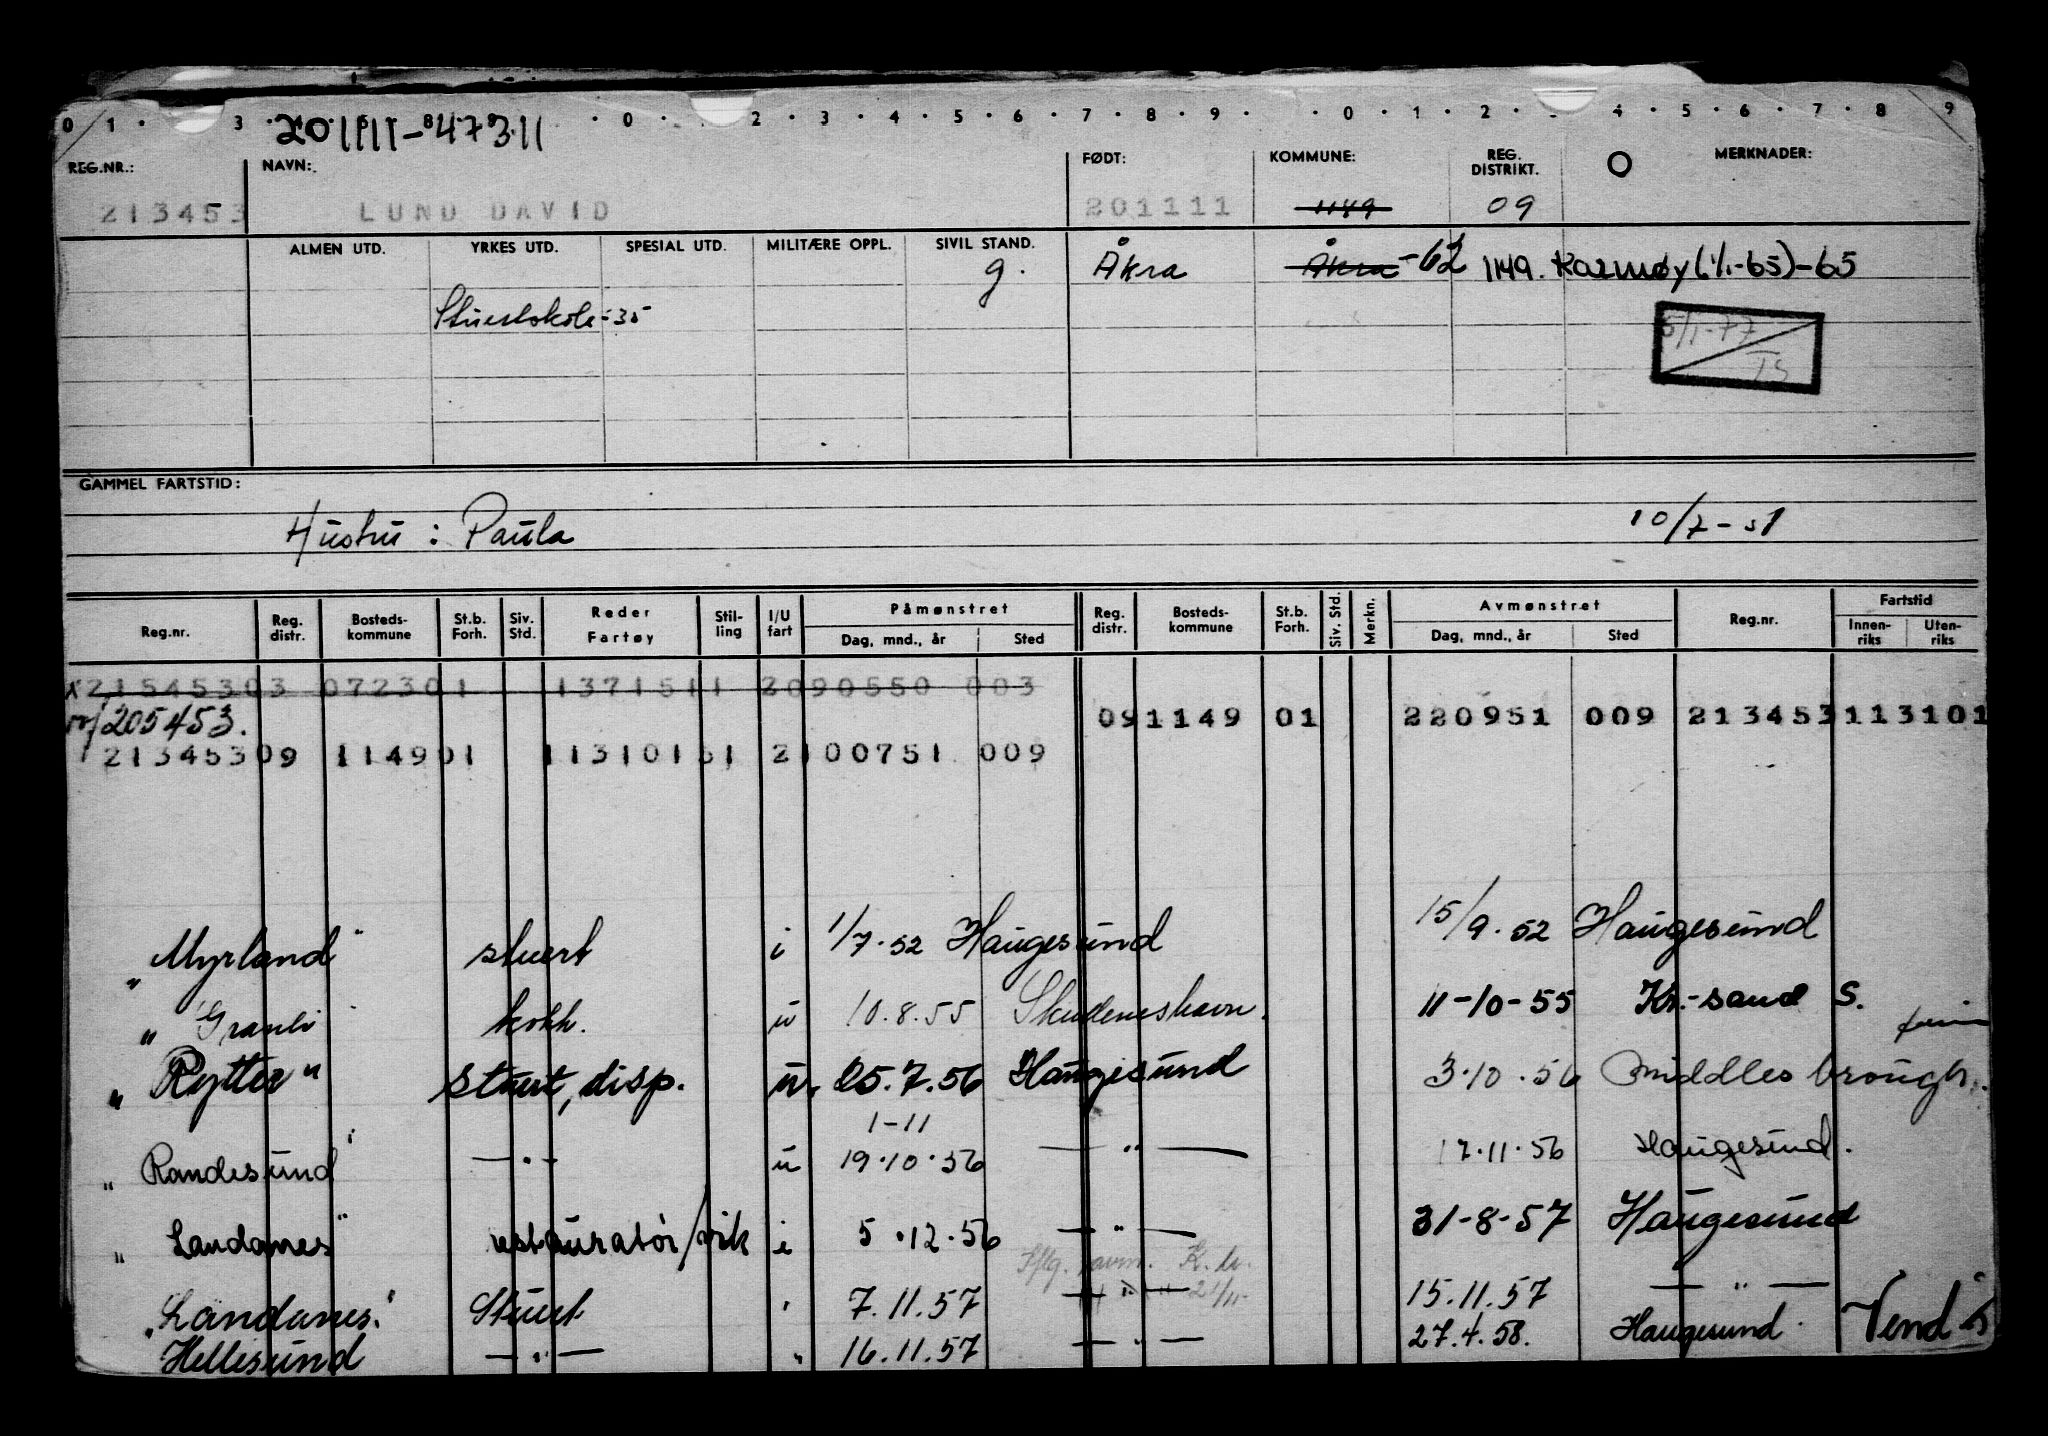 0 1 . 3 . 8 . 0 . 2 . 3 . 4 . 5 . 6 . 7 . 8 . 9 . . 0 . 1 . 2 . 4 . 5 . 6 . 7 . 8 9
201111-47311
REG.NR.: NAVN: FØDT: KOMMUNE: REG. DISTRIKT. O MERKNADER:
213453 LUND DAVID 201111 1149 09
ALMEN UTD. YRKES UTD. SPESIAL UTD. MILITÆRE OPPL. SIVIL STAND.
g. Åkra Åkra -62 1149. Karmøy (1/1-65)-65
Stuertskole-35
5/1-77
TS
GAMMEL FARTSTID:
Hustru : Paula 10/7-51
Reg.nr. Reg. distr. Bosteds-kommune St.b. Forh. Siv. Std. Reder Fartøy Stil-ling I/U fart Påmønstret Dag, mnd., år Sted Reg. distr. Bosteds-kommune St.b. Forh. Siv. Std. Merkn. Avmønstret Dag, mnd., år Sted Reg.nr. Fartstid Innen-riks Uten-riks
x 21545303 072301 1371511 2090550 003
205453.
091149 01 220951 009 213453113101
21345309 114901 11310151 2100751 009
"Myrland" stuert i 1/7.52 Haugesund 15/9.52 Haugesund
"Granli" kokk. u 10.8.55 Skudeneshavn. 11-10-55 Kr.-sand S.
"Rytter" stuert, disp. u. 25.7.56 Haugesund 3.10.56 Middlesbrough.
1-11
"Randesund" — " — u 19.10.56 — " — 17.11.56 Haugesund.
"Landanes" restauratør/vik i 5.12.56 — " — 31-8-57 Haugesund
"Landanes" Stuert " 7.11.57 — " — 15.11.57 — " —
Hellesund — " — " 16.11.57 — " — 27.4.58. Haugesund. Vend